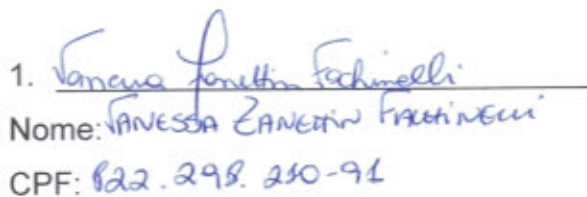 1. Vanessa Zanettin Fachinelli
Nome: VANESSA ZANETTIN FACHINELLI
CPF: 822.298.210-91